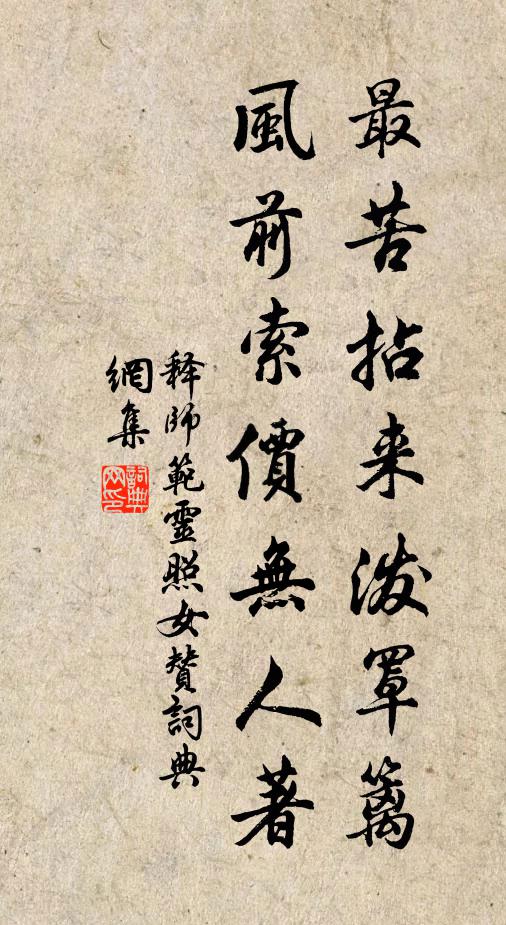 最苦拈来泼罩篱
風前索價無人著
释師範靈照女贊詞典
網集
詞典
网印